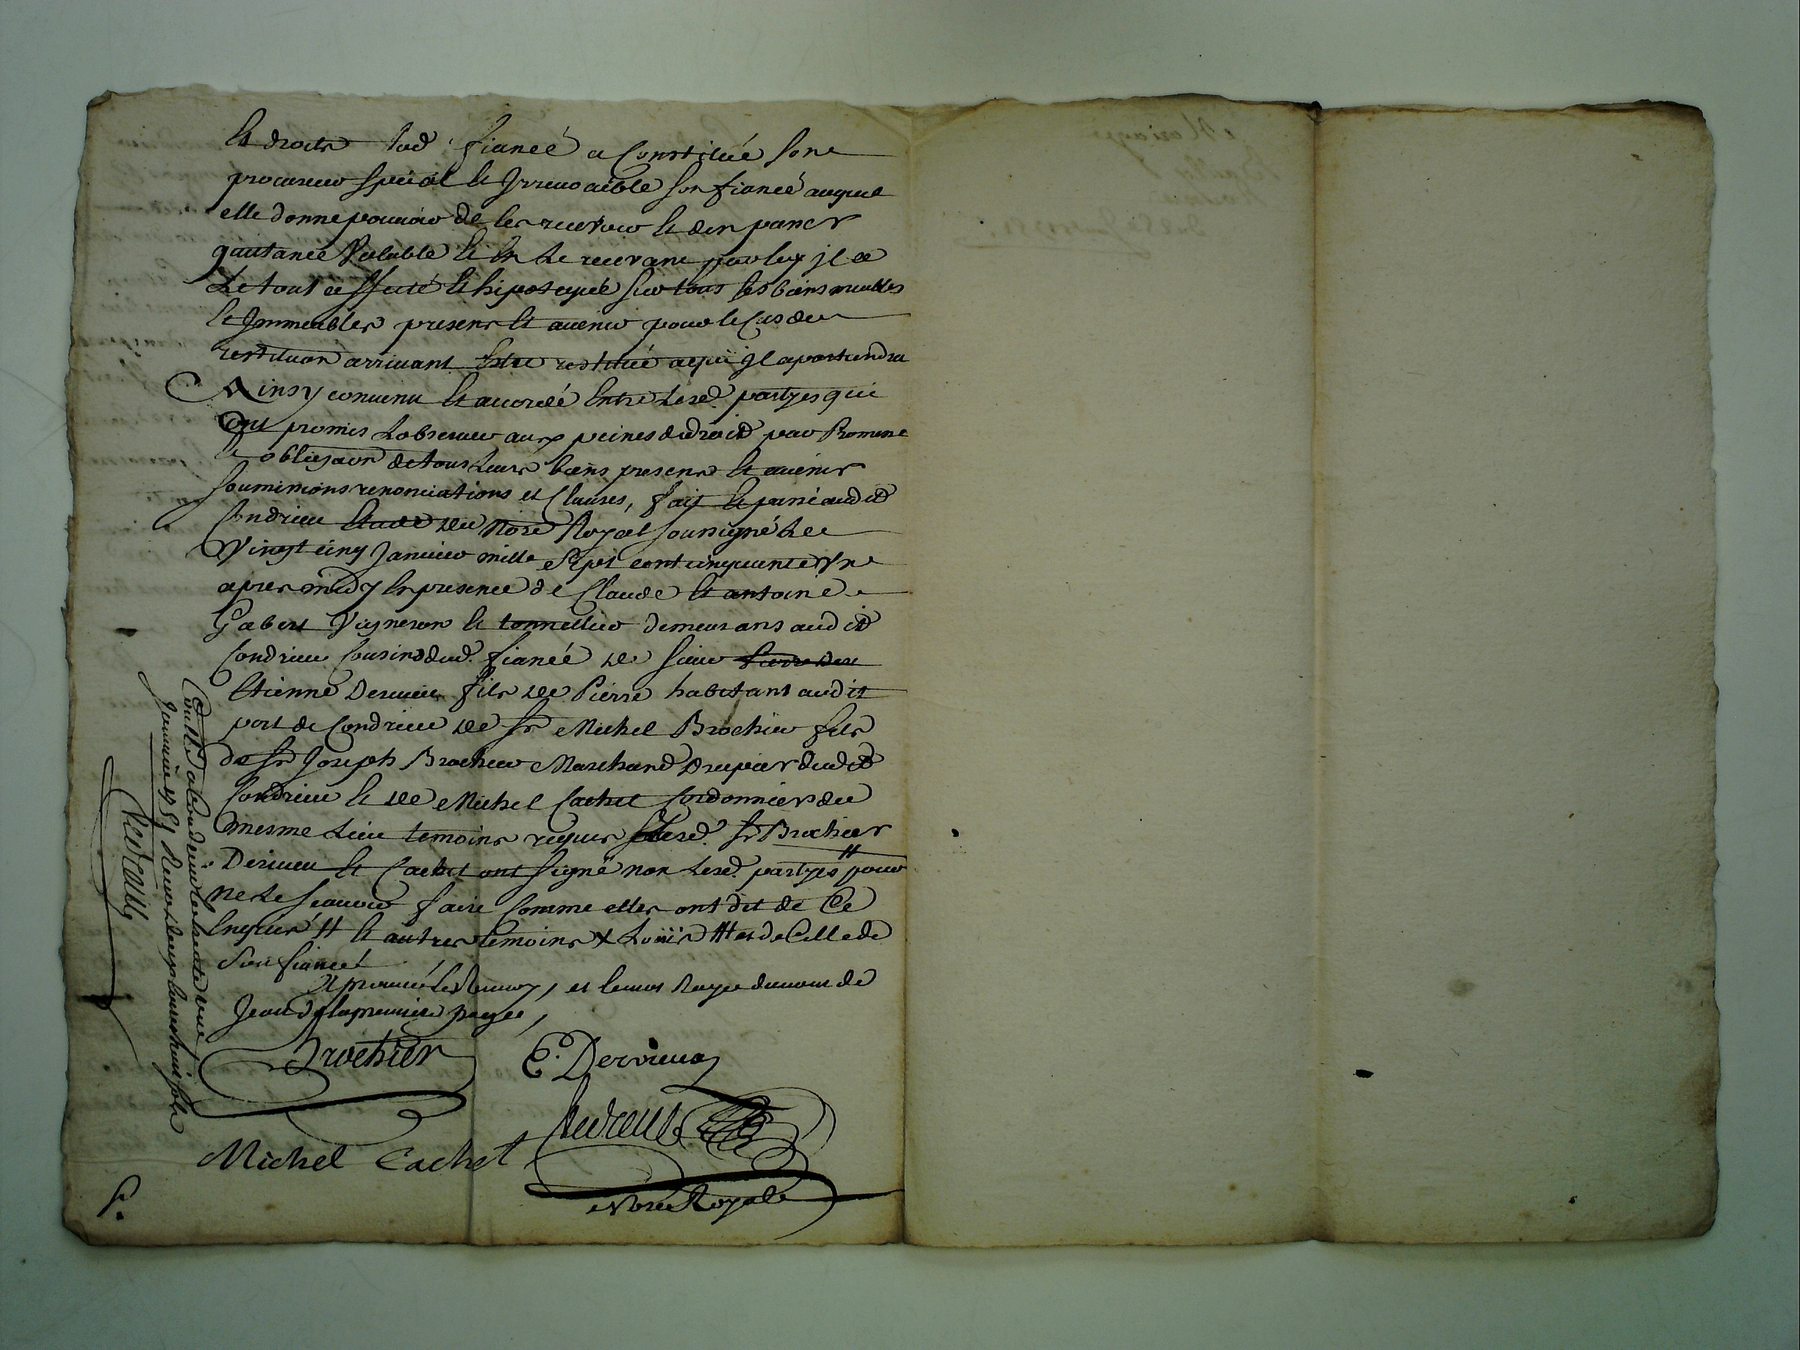 Et droits lad. fiancé a Constitué son
procureur special et Irrevocable son fiancé auquel
elle donne pouvoir de les recevoir et den passer
quittance Valable et en Le recevant par luy il a
Le tout affecté et hipotequé sur tous ses biens meubles
et Immeubles presens et avenir pour le Cas de
restituon arrivant Estre restitué aqui jl apartiendra
Ainsy convenu et accordé Entre Lesd. partyes qui
Ont promis Lobserver aux peines de droit par Promesse
et obligaon de tous Leurs biens presens et avenir
soumissions renonciations et Clauses, fait et passé audit
Condrieu Etude du Nore Royal soussigné Le
Vingt cinq Janvier mille Sept cent cinquante Un
apres midy En presence de Claude et antoine
Gabert Vigneron et tonnellier demeurans audit
Condrieu Cousins dud. fiancé de sieur
Etienne Dervieu fils de Pierre habitant audit
port de Condrieu de Sr Michel Brochier fils
de Sr Joseph Brochier Marchand Drapier dudit
Condrieu et de Michel Cachet Cordonnier du
mesme Lieu temoins requis Lesd. Sr Brochier
Dervieu et Cachet ont signé non Lesd. partyes # pour
ne Le sçavoir faire Comme elles ont dit de Ce
Enquis # et autres temoins x Loüis ## et de Celle de
son fiancé
Aprouvé Le Renvoy, et le mot Rayé du nom de
Jean à la premiere page,
Brochier
E. Dervieux
Michel Cachet
Nore Royal
Janvier 1751 Reçu